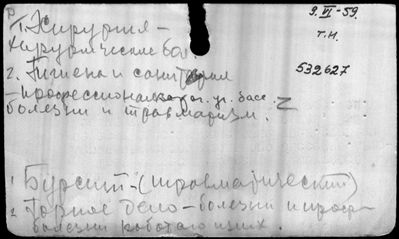 9.VI-59.
т.н.
532627
1. Хирургия -
хирургические бол.
2. Гигиена и санитария
- профессиональн. уг. басс.
болезни и травматизм.
1. Бурсит - (травматический)
2. Горное дело - болезни и проф-
болезни работающих.